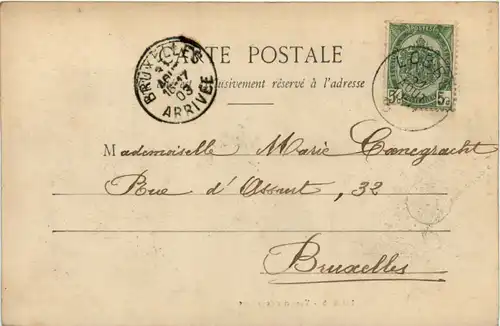 CARTE POSTALE
exclusivement réservé à l'adresse
BRUXELLES
16-17
03
ARRIVÉE
5 5
Mademoiselle Marie Coenegracht
Rue d'Assaut, 32
Bruxelles